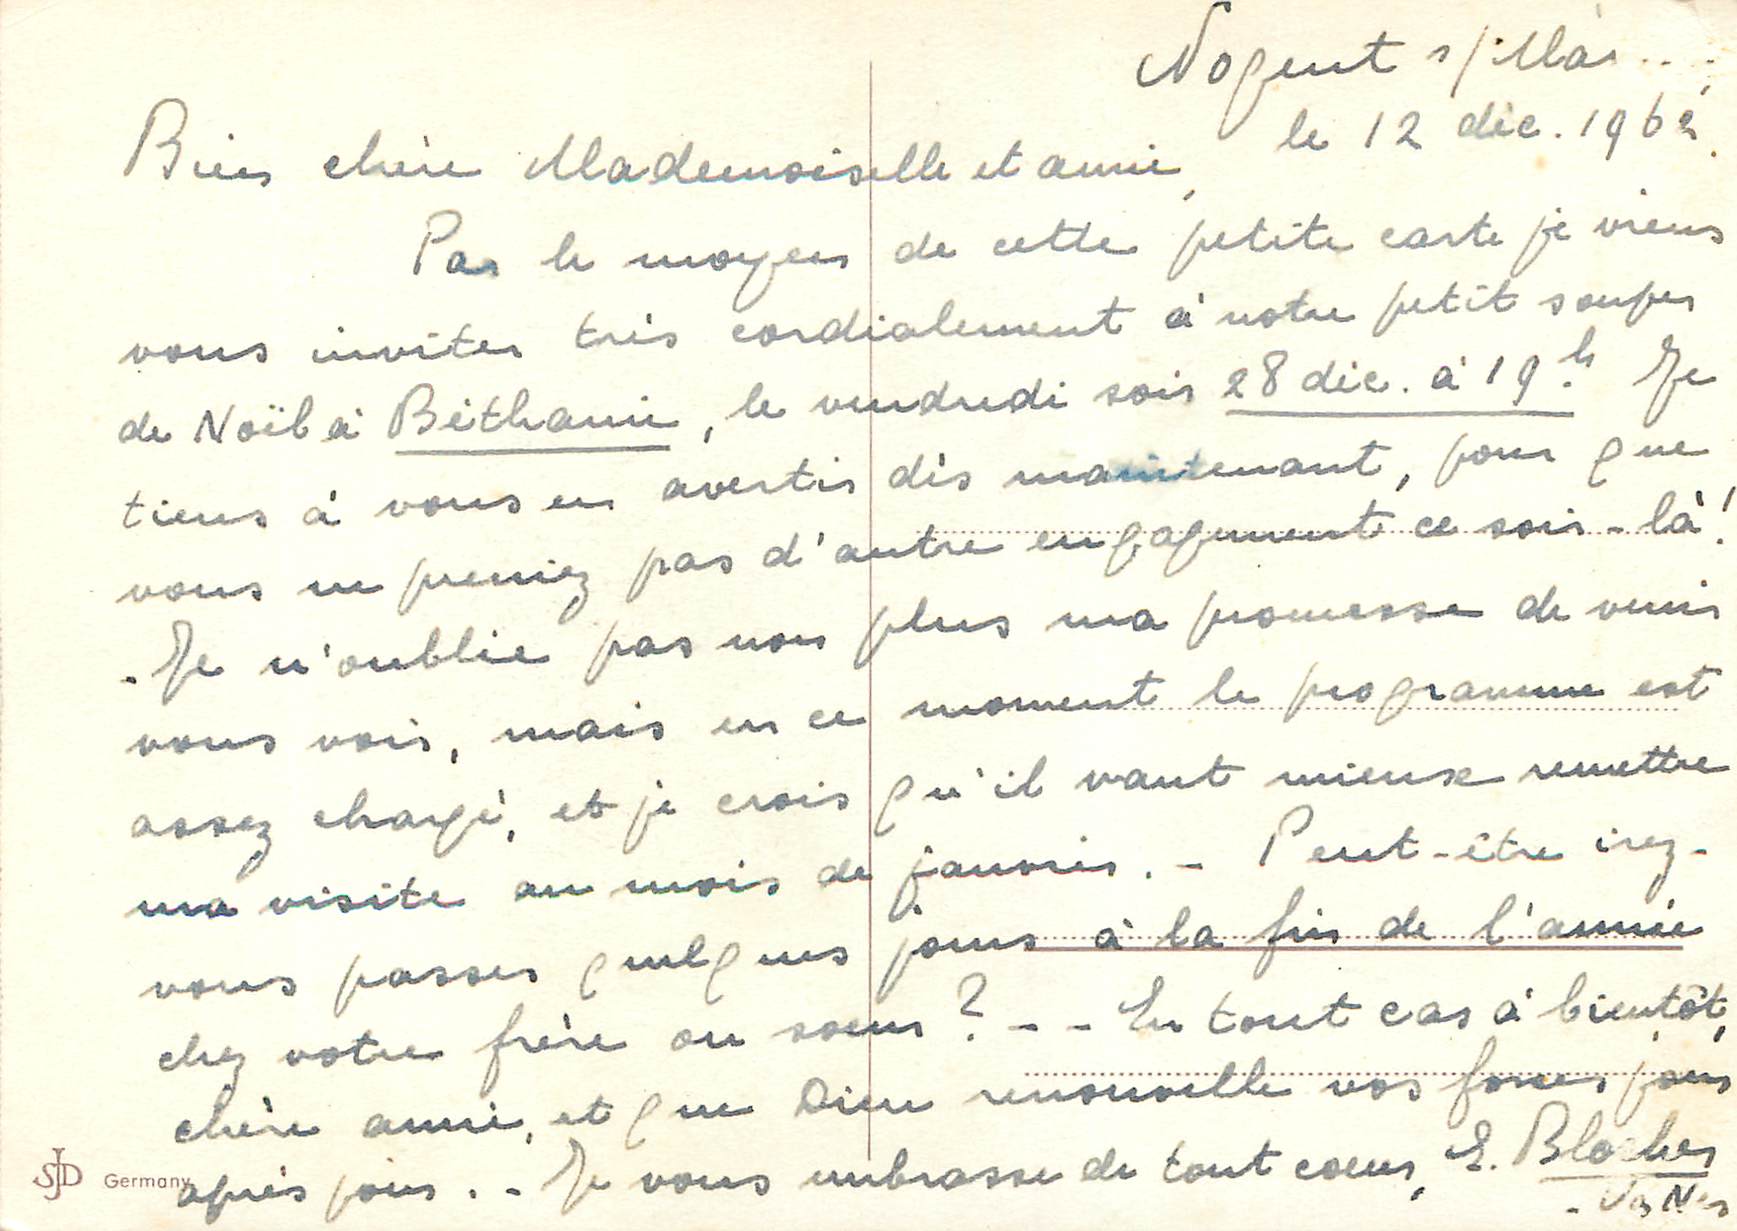 Nogent s/Mar...
le 12 déc. 1962.
Bien chère Mademoiselle et amie,
Par le moyen de cette petite carte je viens
vous inviter très cordialement à notre petit souper
de Noël à Béthanie, le vendredi soir 28 déc. à 19h. Je
tiens à vous en avertir dès maintenant, pour que
vous ne preniez pas d'autre engagement ce soir-là!
- Je n'oublie pas non plus ma promesse de venir
vous voir, mais en ce moment le programme est
assez chargé, et je crois qu'il vaut mieux remettre
ma visite au mois de janvier. - Peut-être irez-
vous passer quelques jours à la fin de l'année
chez votre frère ou soeur ? - - En tout cas à bientôt,
chère amie, et que Dieu renouvelle vos forces jour
après jour. - Je vous embrasse de tout coeur, E. Blocher
SJD Germany